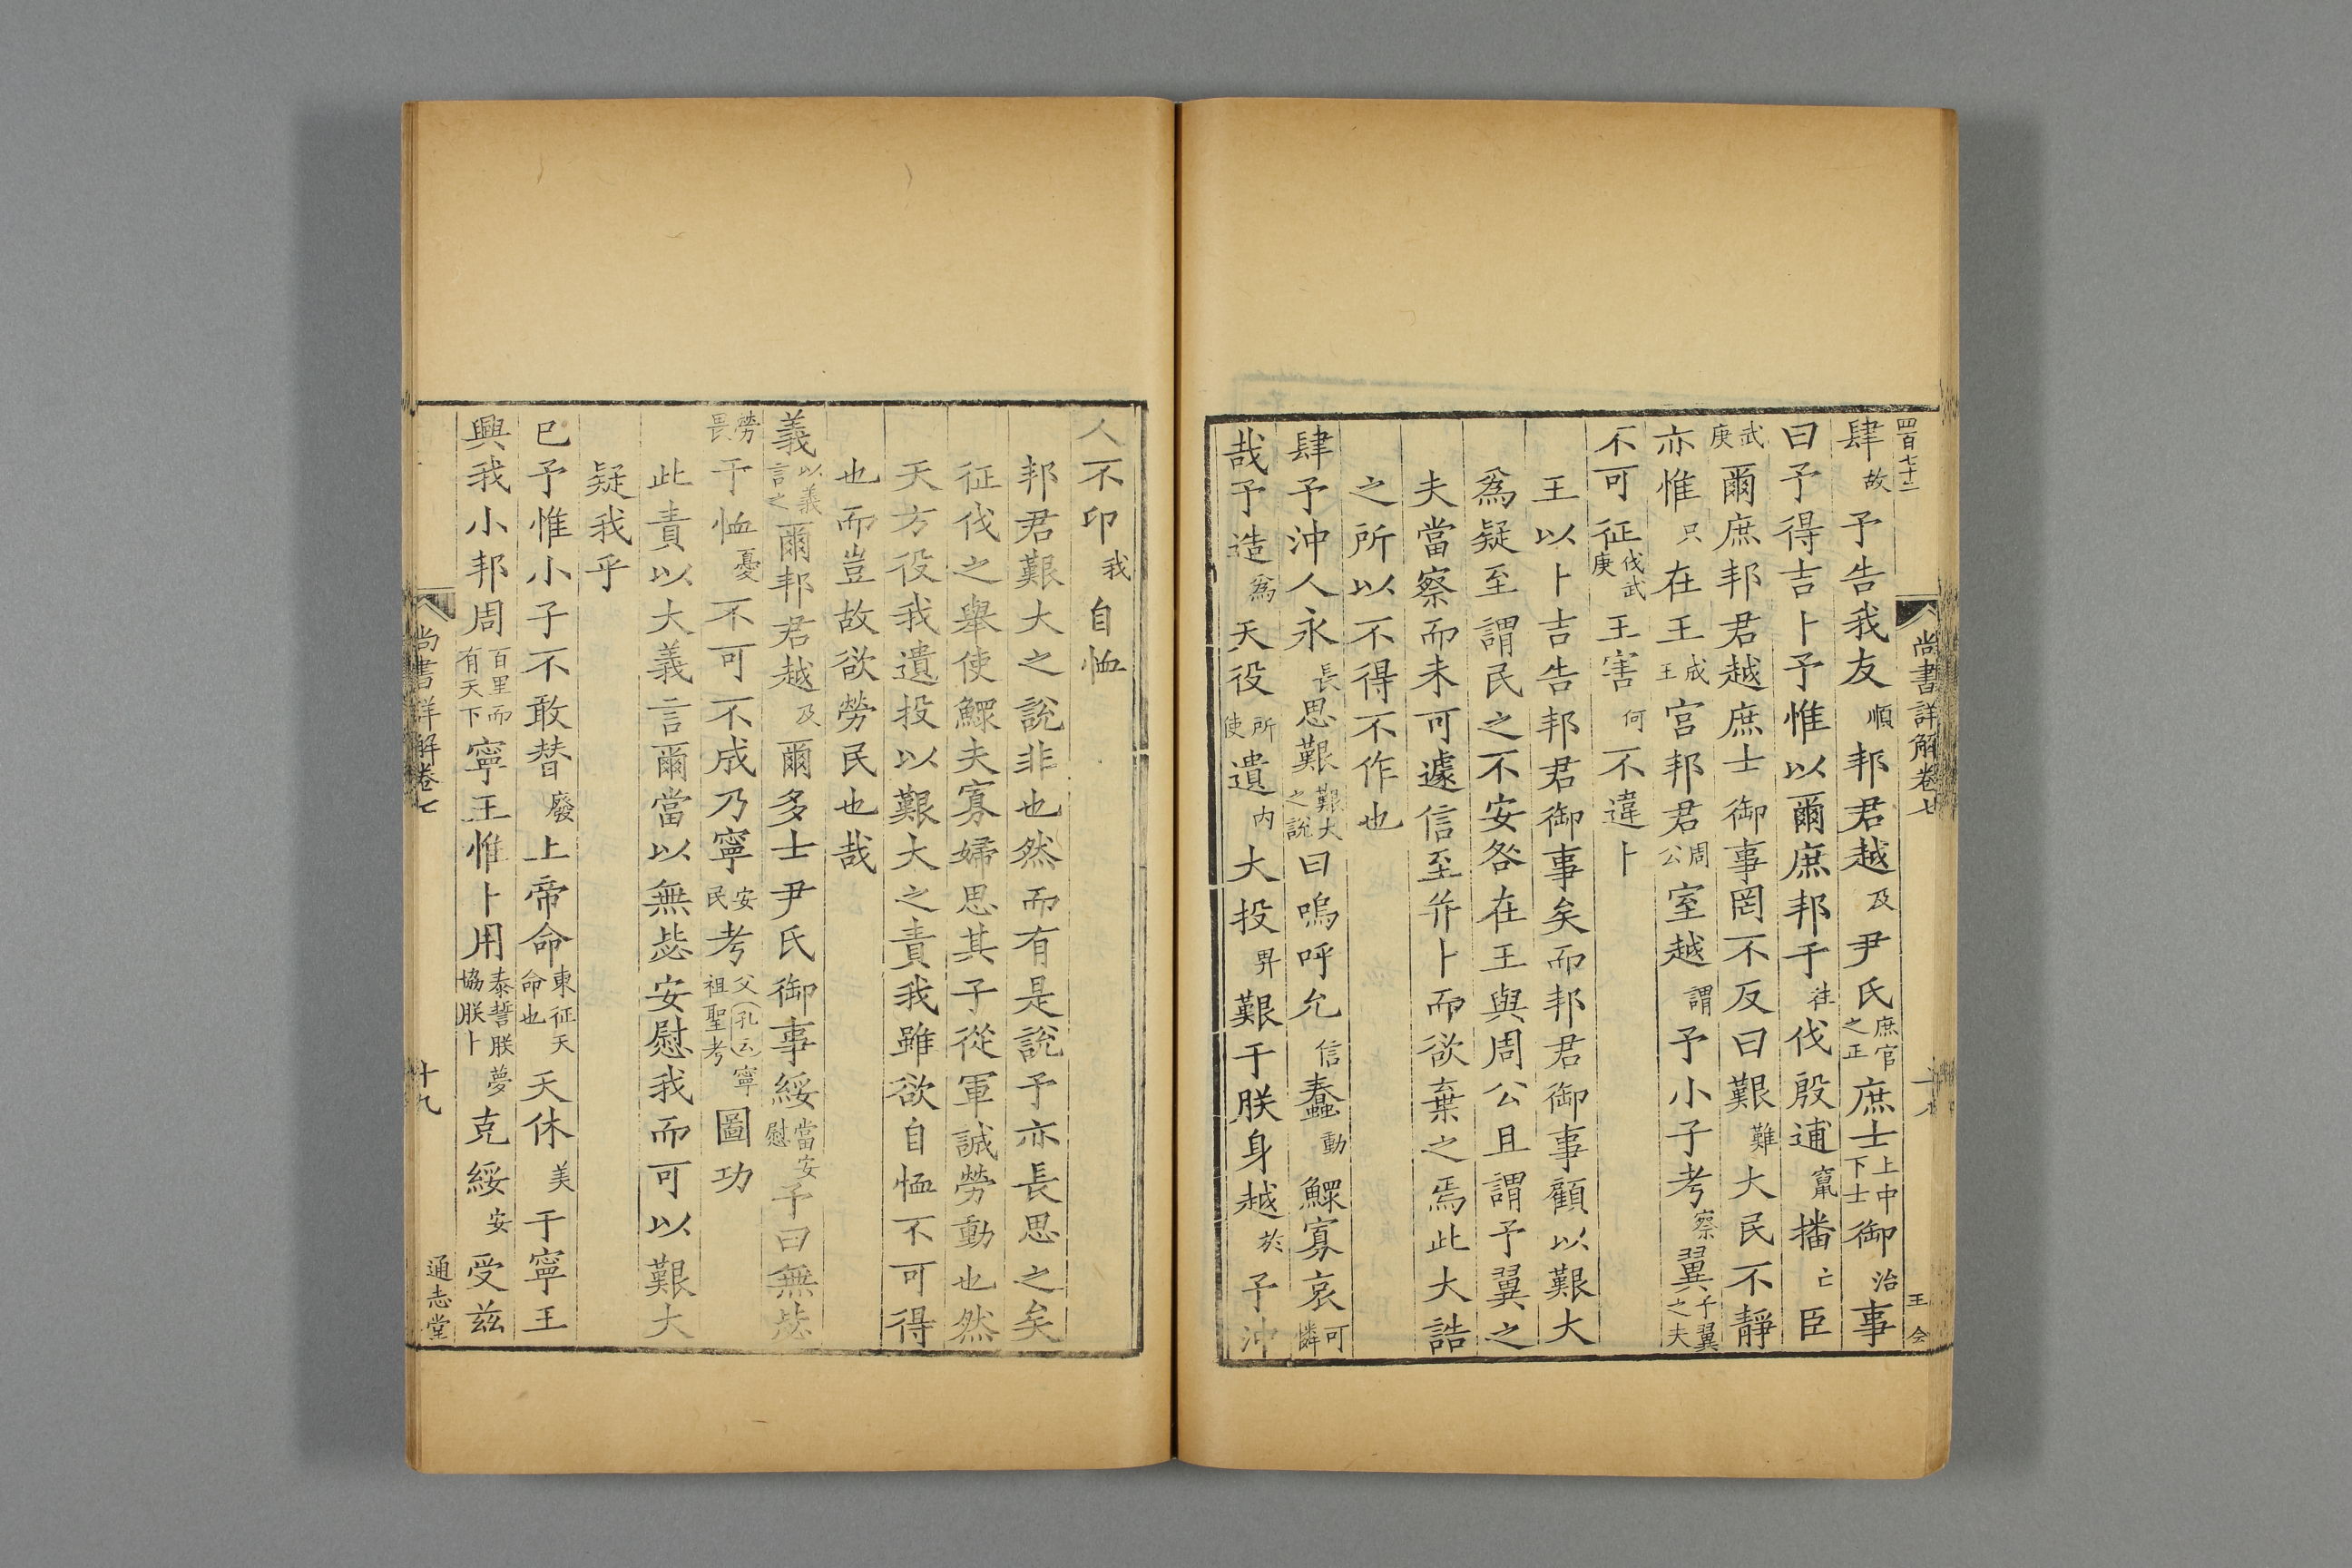 四百七十二
尚書詳解卷七
王 会
肆故予告我友順邦君越及尹氏庶官之正庶士上中下士御治事
曰予得吉卜予惟以爾庶邦于往伐殷逋竄播亡臣
武庚爾庶邦君越庶士御事罔不反曰艱難大民不靜
亦惟只在王成王宮邦君周公室越謂予小子考察翼子翼之夫
不可征伐武庚王害何不違卜
王以卜吉告邦君御事矣而邦君御事顧以艱大
爲疑至謂民之不安咎在王與周公且謂予翼之
夫當察而未可遽信至并卜而欲棄之焉此大誥
之所以不得不作也
肆予沖人永長思艱艱大之說曰嗚呼允信蠢動鰥寡哀可憐
哉予造爲天役所使遺內大投畀艱于朕身越於予沖
人不卬我自恤
邦君艱大之說非也然而有是說予亦長思之矣
征伐之舉使鰥夫寡婦思其子從軍誠勞動也然
天方役我遺投以艱大之責我雖欲自恤不可得
也而豈故欲勞民也哉
義以義言之爾邦君越及爾多士尹氏御事綏當安慰予曰無毖
勞畏于恤憂不可不成乃寧安民考父孔云寧祖聖考圖功
此責以大義言爾當以無毖安慰我而可以艱大
疑我乎
已予惟小子不敢替廢上帝命東征天命也天休美于寧王
興我小邦周百里而有天下寧王惟卜用泰誓朕夢協朕卜克綏安受茲
尚書詳解卷七
十九
通志堂